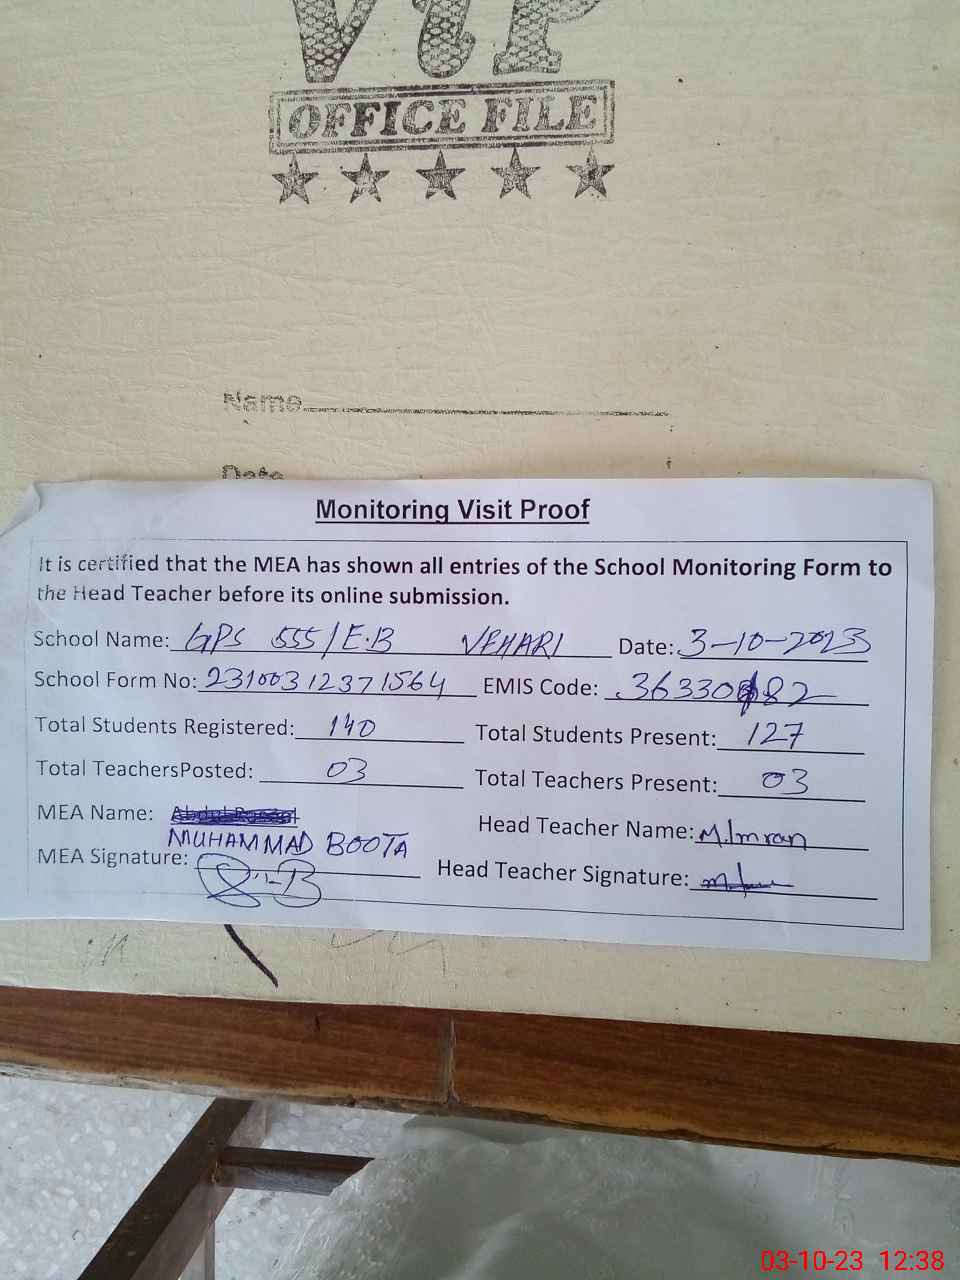 VIP
OFFICE FILE
Name
Date
Monitoring Visit Proof
It is certified that the MEA has shown all entries of the School Monitoring Form to
the Head Teacher before its online submission.
School Name: GPS 555/E.B VEHARI Date: 3-10-2023
School Form No: 23100312371564 EMIS Code: 36330182
Total Students Registered: 140 Total Students Present: 127
Total TeachersPosted: 03 Total Teachers Present: 03
MEA Name:
MUHAMMAD BOOTA Head Teacher Name: M.Imran
MEA Signature: Head Teacher Signature:
03-10-23 12:38